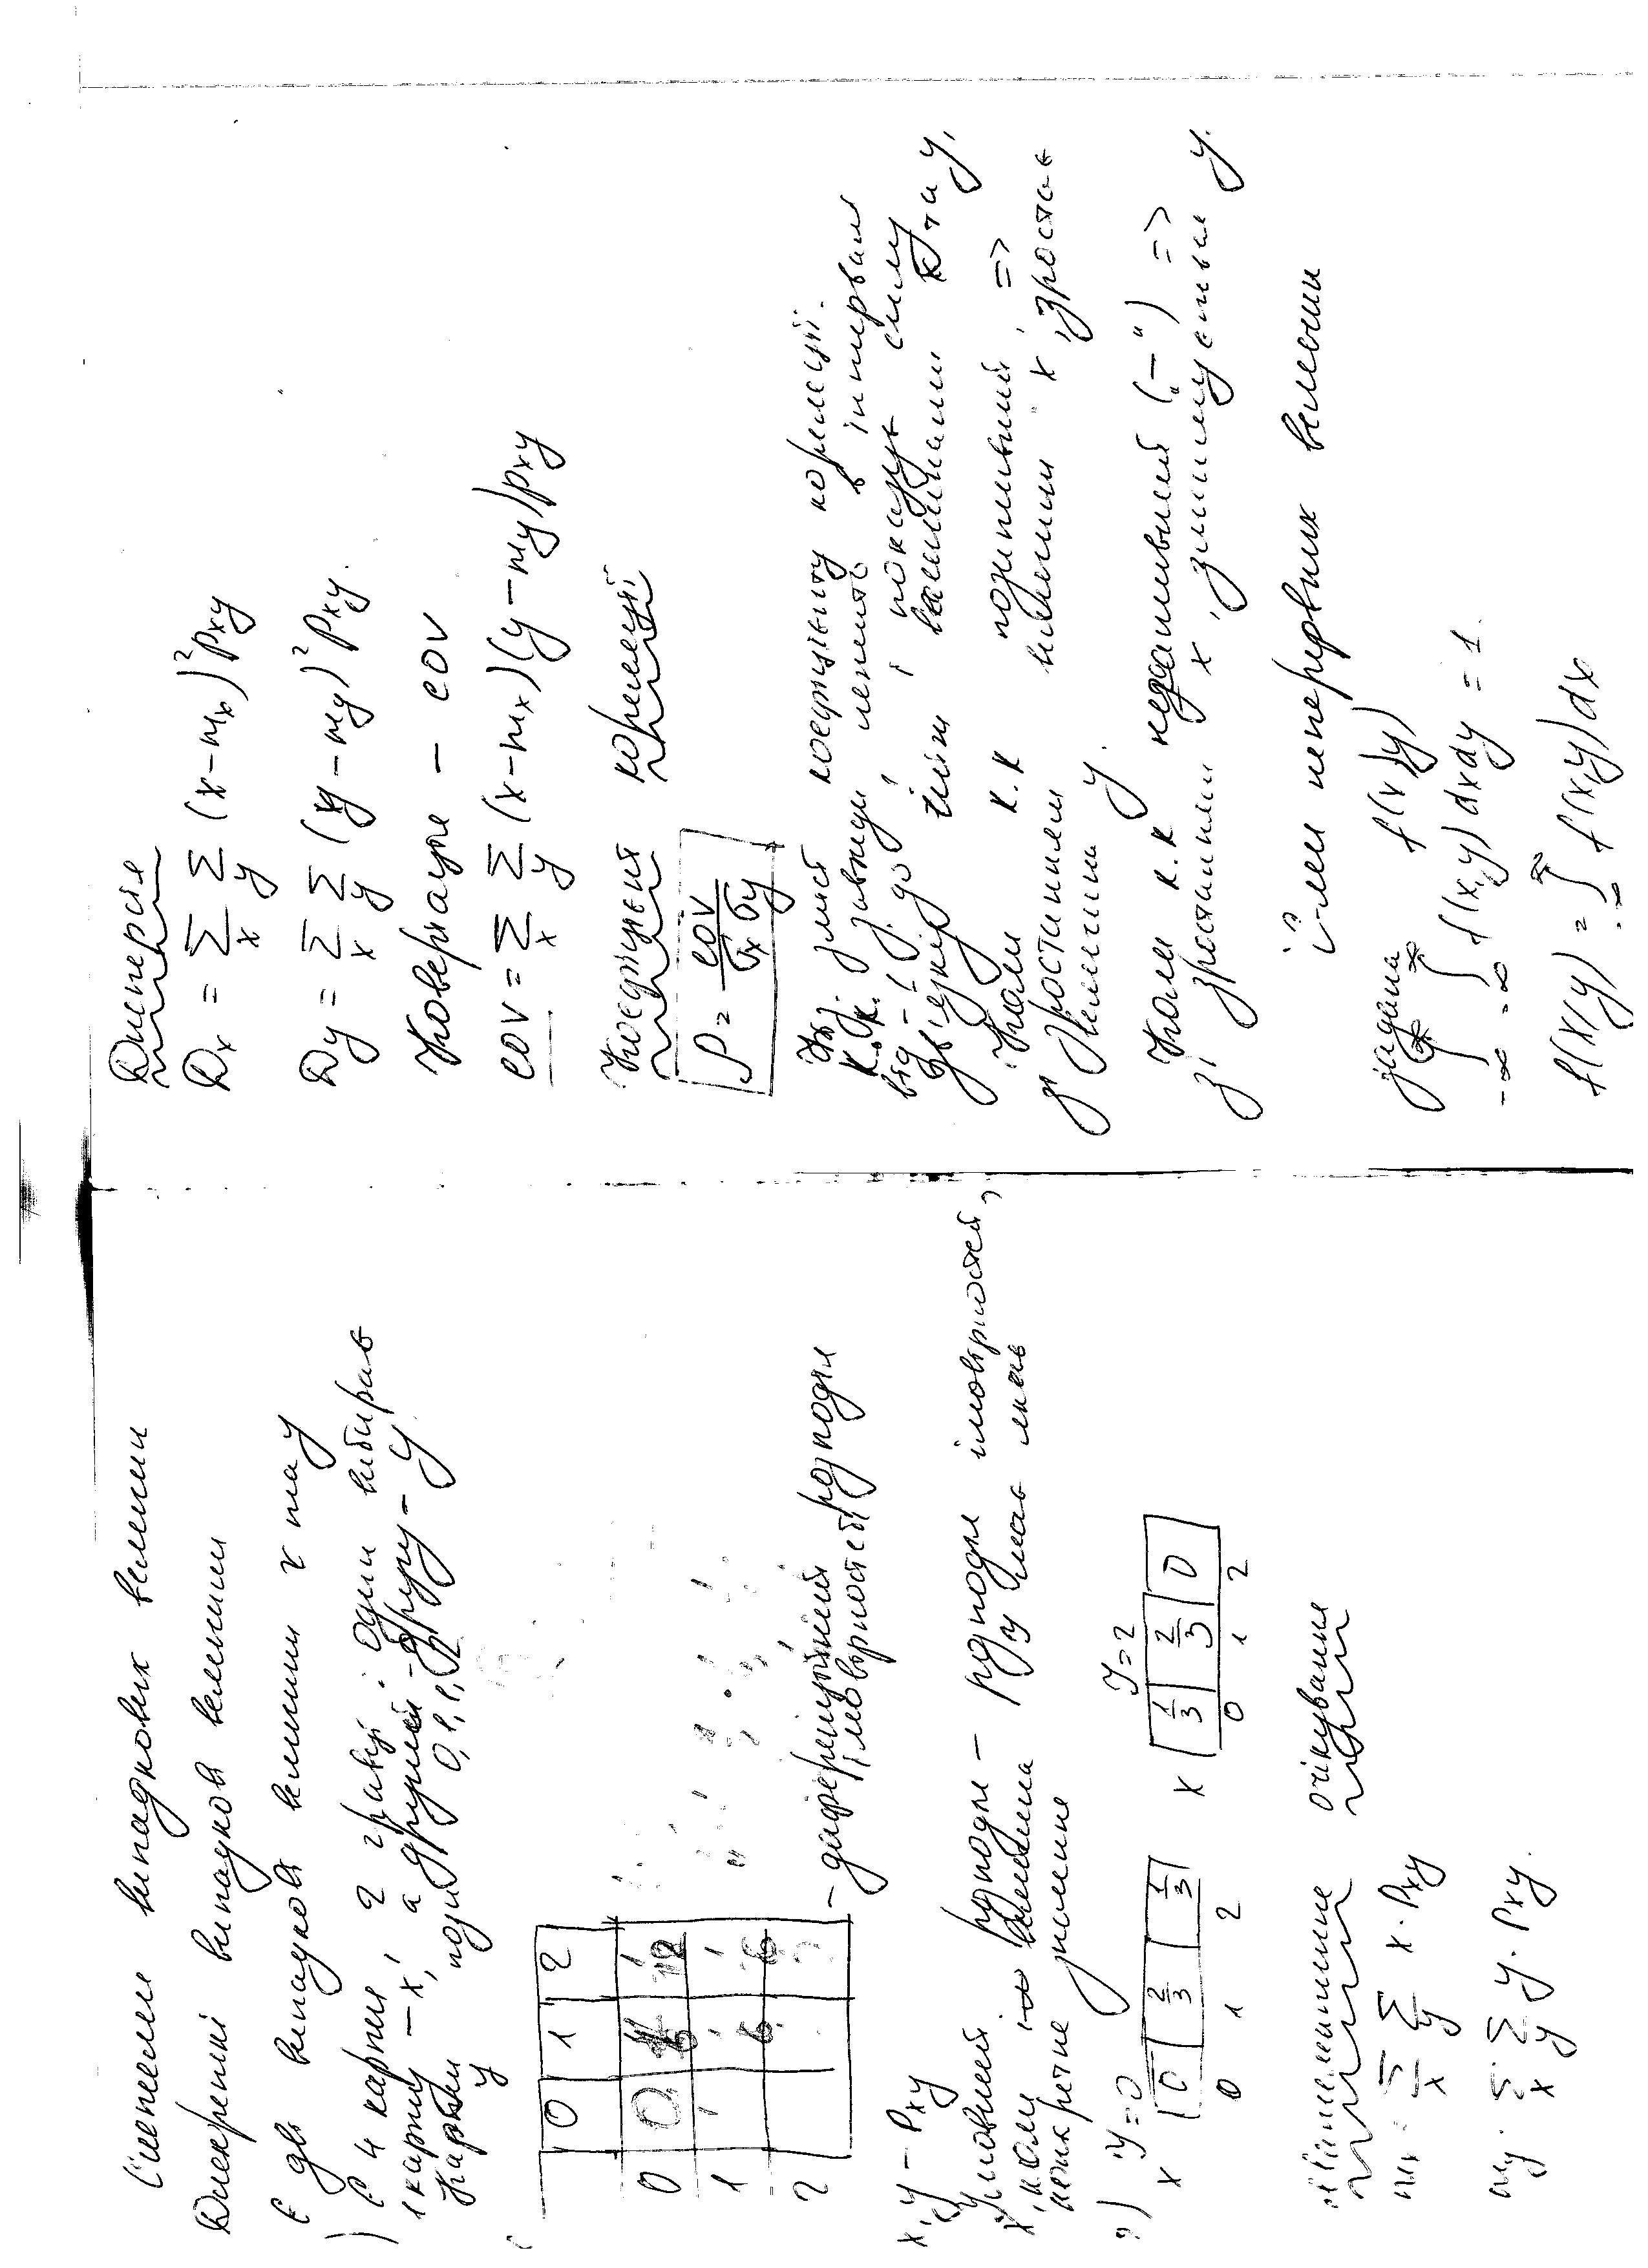 Системи випадкових величин
Дискретні випадкові величини
Є дві випадкові величини x та y
) Є 4 карти, 2 гравці: один вибирає
1 карту – x, а другий – другу – y
Карти 0, 1, 1, 2
y
0 1 2
0 0 1/6 1/12
1 1/6 1/6
2
– диференційний розподіл
імовірностей
x, y – Pxy
Умовний розподіл – розподіл імовірностей,
x, коли величина y має якесь
конкретне значення
) Y=0 Y=2
x 0 2/3 1/3 x 1/3 2/3 0
0 1 2 0 1 2
Математичне очікування
mx = Σx Σy x · Pxy
my = Σx Σy y · Pxy.
Дисперсія
Dx = Σx Σy (x – mx)² pxy
Dy = Σx Σy (y – my)² pxy.
Коверіація – cov
cov = Σx Σy (x – mx)(y – my) pxy
Коефіцієнт кореляції
ρ = cov / σx σy
Фіз. зміст коефіцієнту кореляції.
К.к. завжди лежить в інтервалі
від –1 до 1 і показує силу
зв'язку між величинами x та y,
Коли к.к позитивний =>
зі зростанням величини x, зростає
величина y.
Коли к.к негативний („–“) =>
зі зростанням x, зменшується y.
С-ми неперервних величин
задана f(x,y)
∫-∞^∞ ∫-∞^∞ f(x,y) dxdy = 1.
f(x/y) = ∫-∞^∞ f(x,y) dx